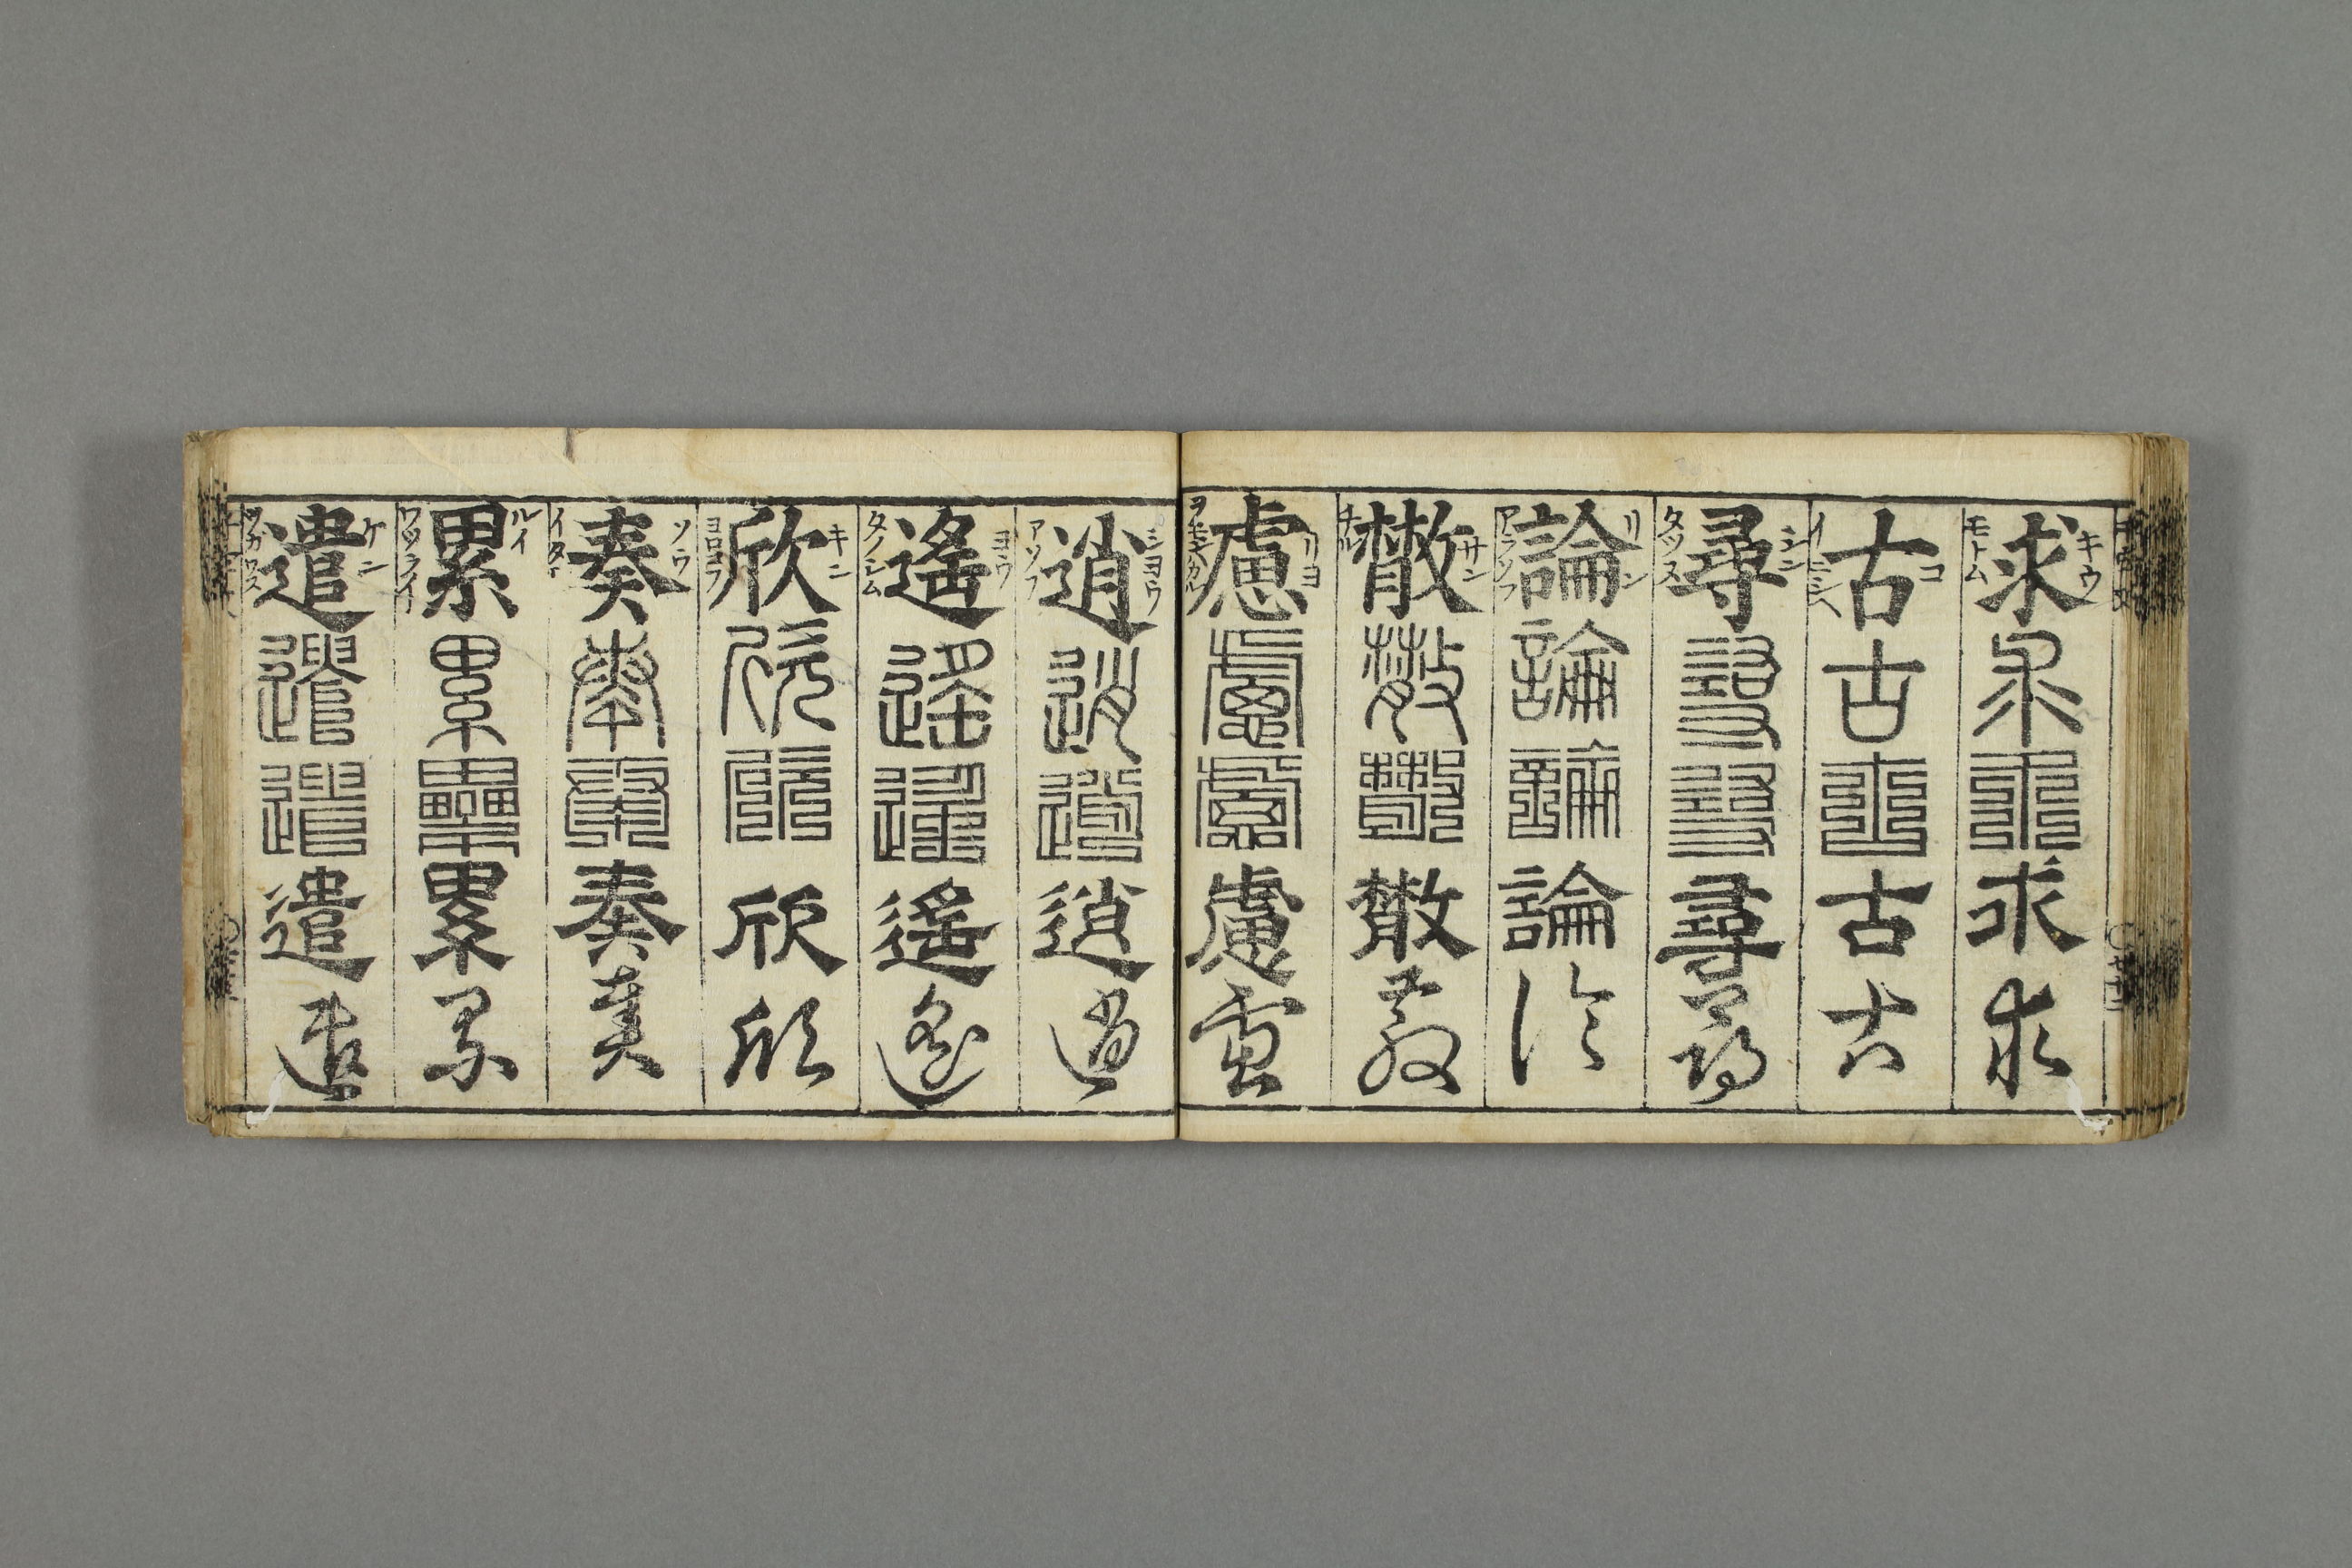 求 求 求 求 求 キウ モトム
古 古 古 古 古 コ イニシヘ
尋 尋 尋 尋 尋 シン タツヌ
論 論 論 論 論 リン アラソフ
散 散 散 散 散 サン チル
慮 慮 慮 慮 慮 リヨ
逍 逍 逍 逍 逍 シヨウ アソフ
遙 遙 遙 遙 遙 ヨウ タノシム
欣 欣 欣 欣 欣 キン ヨロコフ
奏 奏 奏 奏 奏 ソウ
累 累 累 累 累 ルイ
遣 遣 遣 遣 遣 ケン